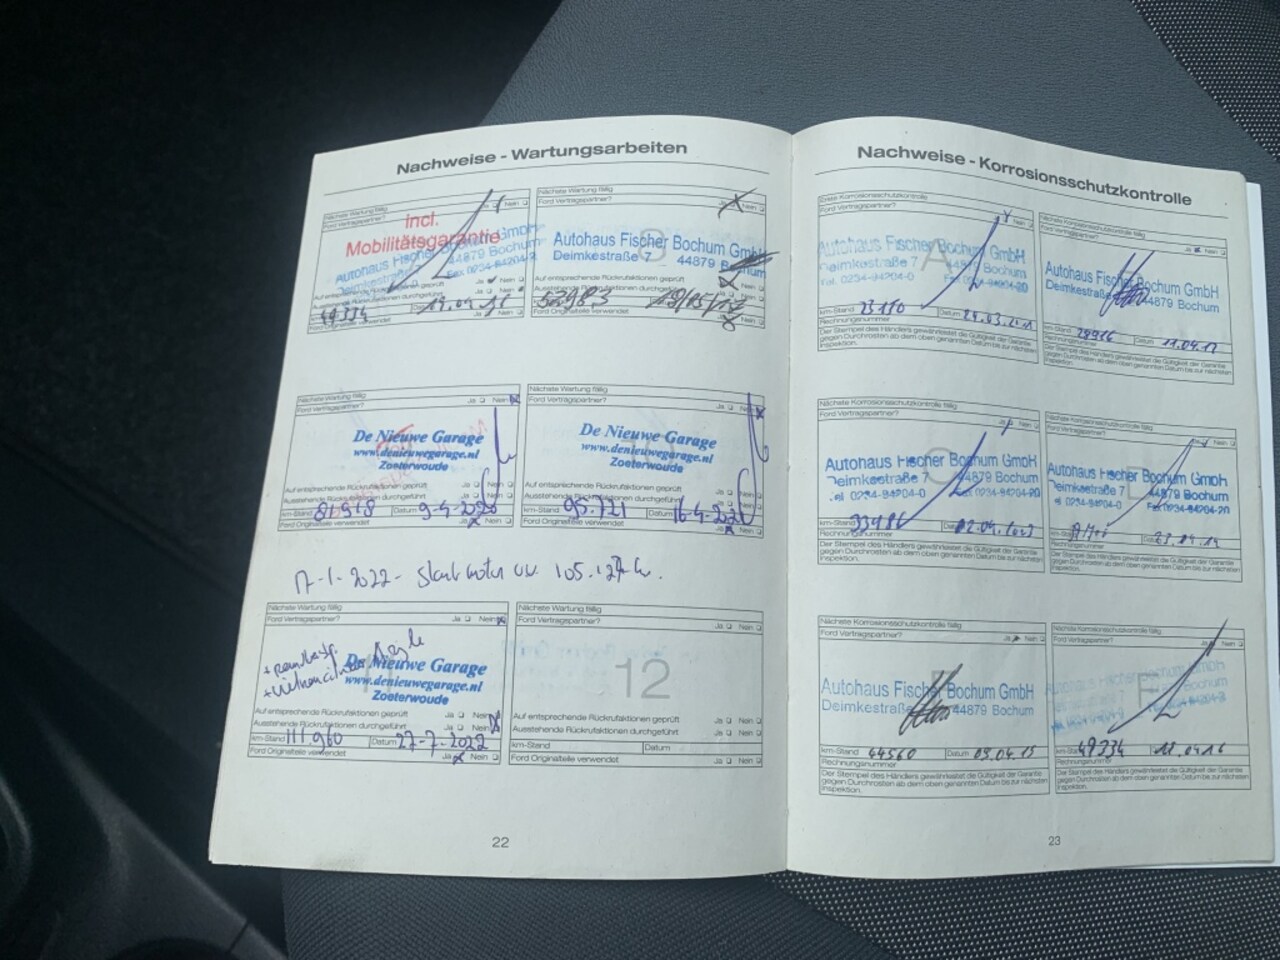 Nachweise - Wartungsarbeiten
Nächste Wartung fällig
Ford Vertragspartner? Nein
incl.
Mobilitätsgarantie
Autohaus Fischer Bochum GmbH
44879 Bochum
Auf entsprechende Rückrufaktionen geprüft Ja Nein
Ausstehende Rückrufaktionen durchgeführt Ja Nein
49334 Datum 19.04.16
Ford Originalteile verwendet Ja Nein
Nächste Wartung fällig
Ford Vertragspartner? Ja Nein
8
Autohaus Fischer Bochum GmbH
Deimkestraße 7 44879 Bochum
Auf entsprechende Rückrufaktionen geprüft
Ausstehende Rückrufaktionen durchgeführt
52983
Ford Originalteile verwendet Ja Nein
Nächste Wartung fällig
Ford Vertragspartner? Ja Nein
De Nieuwe Garage
www.denieuwegarage.nl
Zoeterwoude
Auf entsprechende Rückrufaktionen geprüft Ja Nein
Ausstehende Rückrufaktionen durchgeführt Ja Nein
km-Stand 81918 Datum 9-4-2020
Ford Originalteile verwendet Ja Nein
Nächste Wartung fällig
Ford Vertragspartner? Ja Nein
10
De Nieuwe Garage
www.denieuwegarage.nl
Zoeterwoude
Auf entsprechende Rückrufaktionen geprüft Ja Nein
Ausstehende Rückrufaktionen durchgeführt Ja Nein
km-Stand 95.721 Datum 16-4-2021
Ford Originalteile verwendet Ja Nein
17-1-2022- 105.127 km.
Nächste Wartung fällig
Ford Vertragspartner? Ja Nein
De Nieuwe Garage
www.denieuwegarage.nl
Zoeterwoude
Auf entsprechende Rückrufaktionen geprüft Ja Nein
Ausstehende Rückrufaktionen durchgeführt Ja Nein
km-Stand 111960 Datum 27-7-2022
Ford Originalteile verwendet Ja Nein
Nächste Wartung fällig
Ford Vertragspartner? Ja Nein
12
Auf entsprechende Rückrufaktionen geprüft Ja Nein
Ausstehende Rückrufaktionen durchgeführt Ja Nein
km-Stand Datum
Ford Originalteile verwendet Ja Nein
22
Nachweise - Korrosionsschutzkontrolle
Erste Korrosionsschutzkontrolle
Ford Vertragspartner? Nein
A
Autohaus Fischer Bochum GmbH
Deimkestraße 7 44879 Bochum
Tel. 0234-94204-0 Fax 0234-94204-20
km-Stand 23170 Datum 24.03.2011
Rechnungsnummer
Der Stempel des Händlers gewährleistet die Gültigkeit der Garantie
gegen Durchrosten ab dem oben genannten Datum bis zur nächsten
Inspektion.
Nächste Korrosionsschutzkontrolle fällig
Ford Vertragspartner? Ja Nein
Autohaus Fischer Bochum GmbH
Deimkestraße 44879 Bochum
km-Stand 28916 Datum 11.04.12
Rechnungsnummer
Der Stempel des Händlers gewährleistet die Gültigkeit der Garantie
gegen Durchrosten ab dem oben genannten Datum bis zur nächsten
Inspektion.
Nächste Korrosionsschutzkontrolle fällig
Ford Vertragspartner? Ja
C
Autohaus Fischer Bochum GmbH
Deimkestraße 7 44879 Bochum
Tel 0234-94204-0 Fax 0234-94204-20
km-Stand Datum 02.04.2013
Rechnungsnummer
Der Stempel des Händlers gewährleistet die Gültigkeit der Garantie
gegen Durchrosten ab dem oben genannten Datum bis zur nächsten
Inspektion.
Nächste Korrosionsschutzkontrolle fällig
Ford Vertragspartner?
Autohaus Fischer Bochum GmbH
Deimkestraße 7 44879 Bochum
Tel 0234-94204-0 Fax 0234-94204-20
23.04.14
Rechnungsnummer
Der Stempel des Händlers gewährleistet die Gültigkeit der Garantie
gegen Durchrosten ab dem oben genannten Datum bis zur nächsten
Inspektion.
Nächste Korrosionsschutzkontrolle fällig
Ford Vertragspartner? Ja Nein
E
Autohaus Fischer Bochum GmbH
Deimkestraße 44879 Bochum
km-Stand 44560 Datum 09.04.15
Rechnungsnummer
Der Stempel des Händlers gewährleistet die Gültigkeit der Garantie
gegen Durchrosten ab dem oben genannten Datum bis zur nächsten
Inspektion.
Nächste Korrosionsschutzkontrolle fällig
Ford Vertragspartner? Ja Nein
F
km-Stand 49334 Datum 18.04.16
Rechnungsnummer
Der Stempel des Händlers gewährleistet die Gültigkeit der Garantie
gegen Durchrosten ab dem oben genannten Datum bis zur nächsten
Inspektion.
23